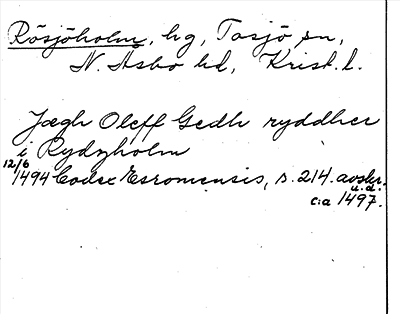 Rösjöholm, hg, Tosjö sn,
N. Åsbo hd, Krist. l.
Jægh Oleff Gedh ryddher
i Rydzholm
12/6 1494 Codex Esromensis, s. 214. avskr. u.d.
c:a 1497.